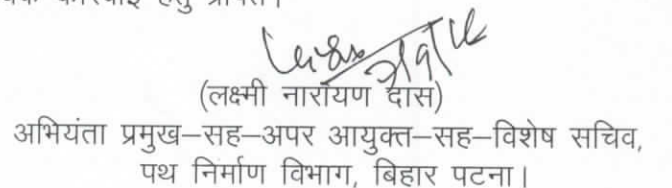 कार्रवाई हेतु प्रेषित।
(लक्ष्मी नारायण दास)
अभियंता प्रमुख–सह–अपर आयुक्त–सह–विशेष सचिव,
पथ निर्माण विभाग, बिहार पटना।